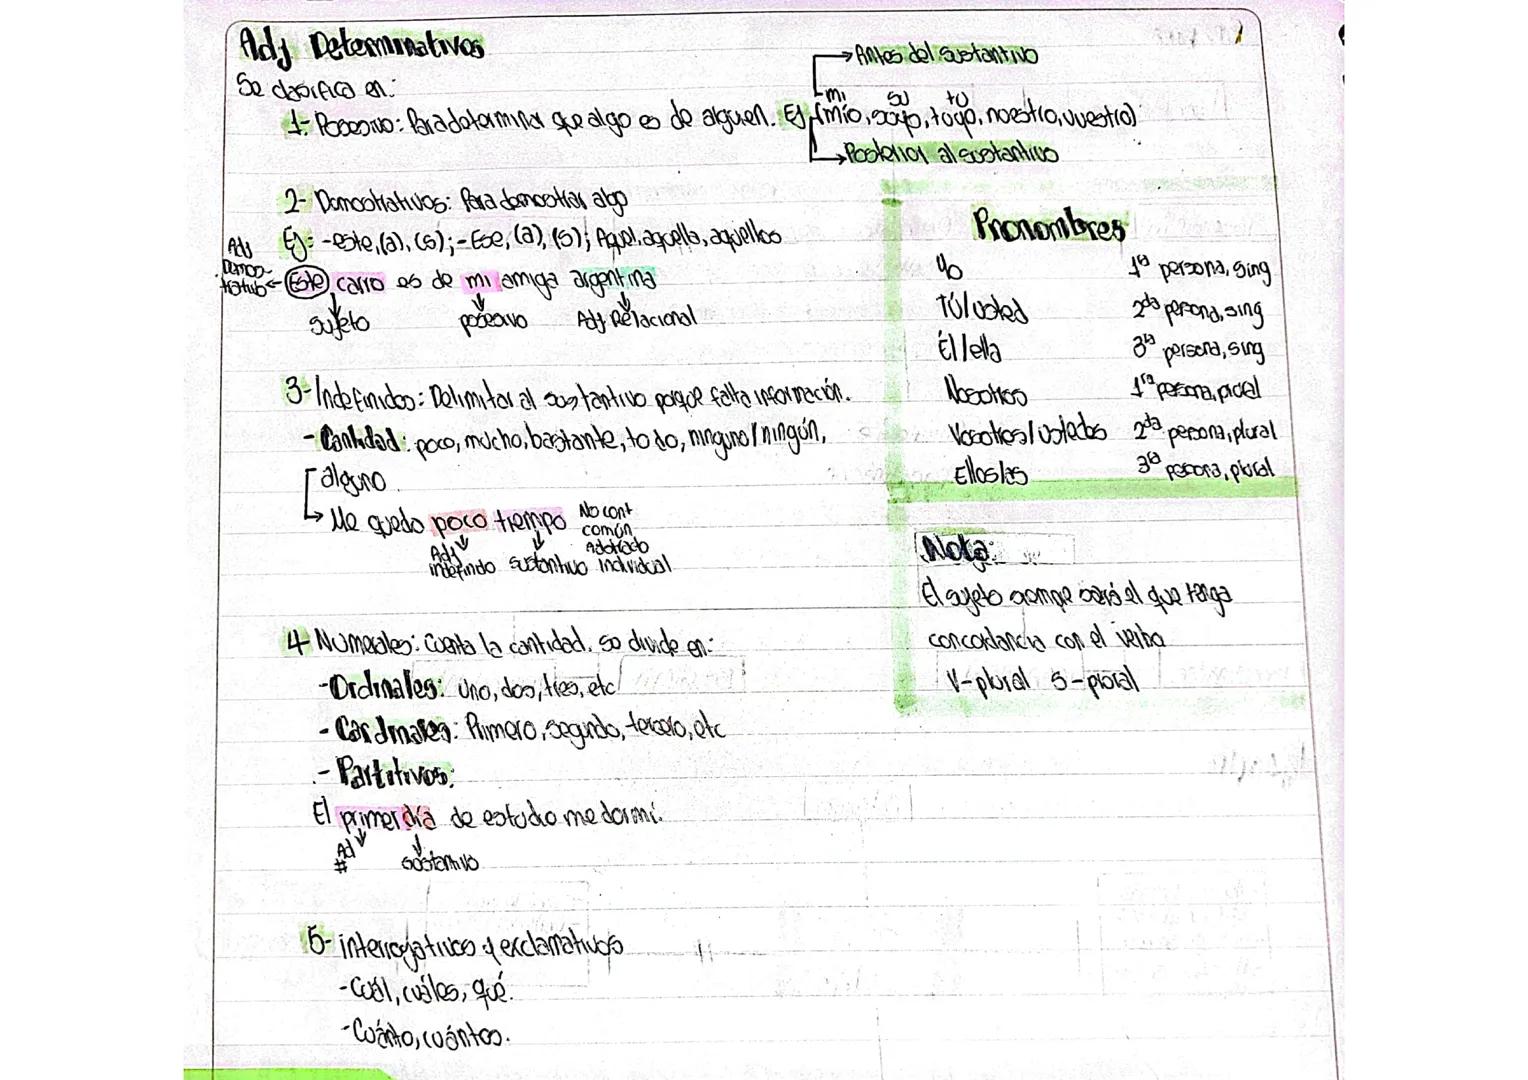 Adj Determinativos
Se clasifica en:
→ Antes del sustantivo
mi su tu
1- Posesivo: Para determinar que algo es de alguien. Ej (mío, suyo, tuyo, nuestro, vuestro)
→ Posterior al sustantivo
2- Demostrativos: Para demostrar algo
Ej: -este, (a), (s); -Ese, (a), (s); Aquel, aquella, aquellos
Adj Demos-trativo ← Este carro es de mi amiga argentina
sujeto posesivo Adj Relacional
3- Indefinidos: Delimitar al sustantivo porque falta información.
- Cantidad: poco, mucho, bastante, todo, ninguno/ningún,
alguno
→ Me quedo poco tiempo
Adj indefinido sustantivo
No cont
común
Abstracto
individual
4- Numerales: Cuenta la cantidad. se divide en:
- Ordinales: Uno, dos, tres, etc
- Cardinales: Primero, segundo, tercero, etc
- Partitivos:
El primer día de estudio me dormí.
Adj # sustantivo
5- interrogativos y exclamativos
- Cuál, cuáles, qué.
- Cuánto, cuántos.
Pronombres
Yo 1ª persona, sing
Tú/usted 2da persona, sing
Él/ella 3ª persona, sing
Nosotros 1ra persona, plural
Vosotros/ustedes 2da persona, plural
Ellos/as 3ª persona, plural
Nota:
El sujeto siempre será el que tenga
concordancia con el verbo
V-plural S-plural